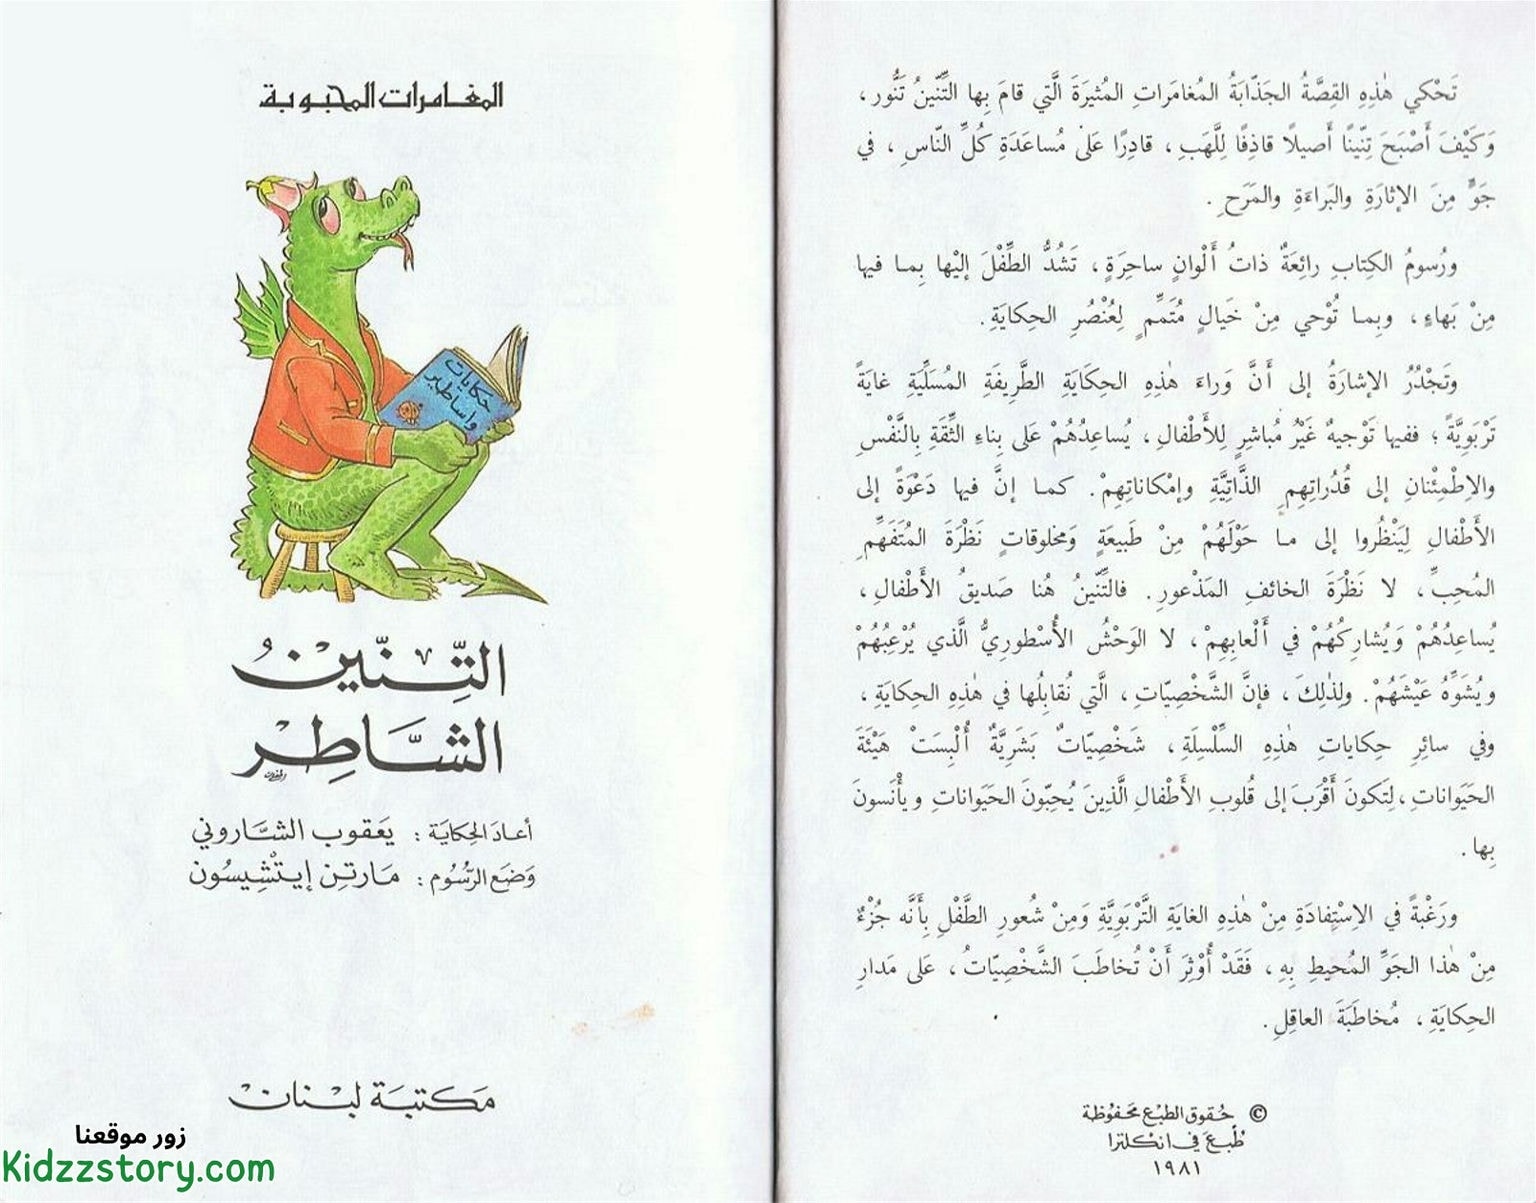 تَحْكي هٰذِهِ القِصَّةُ الجَذّابَةُ المُغامَراتِ المُثيرَةَ الَّتي قامَ بِها التِّنّينُ تَنُّور ،
وَكَيْفَ أَصْبَحَ تِنّينًا أَصيلًا قاذِفًا لِلَّهَبِ ، قادِرًا عَلىٰ مُساعَدَةِ كُلِّ النّاسِ ، في
جَوٍّ مِنَ الإثارَةِ والبَراءَةِ والمَرَحِ .
ورُسومُ الكِتابِ رائِعَةٌ ذاتُ أَلْوانٍ ساحِرَةٍ ، تَشُدُّ الطِّفْلَ إلَيْها بِمـا فيها
مِنْ بَهاءٍ ، وبِمـا تُوْحي مِنْ خَيالٍ مُتَمِّمٍ لِعُنْصُرِ الحِكايَةِ .
وتَجْدُرُ الإشارَةُ إلى أَنَّ وَراءَ هٰذِهِ الحِكايَةِ الطَّريفَةِ المُسَلِّيَةِ غايَةً
تَرْبَوِيَّةً ؛ ففيها تَوْجيهٌ غَيْرُ مُباشِرٍ لِلأَطْفالِ ، يُساعِدُهُمْ عَلى بِناءِ الثِّقَةِ بِالنَّفْسِ
والاِطْمِئْنانِ إلى قُدُراتِهِمِ الذَّاتِيَّةِ وإمْكاناتِهِمْ . كمـا إنَّ فيها دَعْوَةً إلى
الأَطْفالِ لِيَنْظُروا إلى مـا حَوْلَهُمْ مِنْ طَبيعَةٍ وَمخلوقاتٍ نَظْرَةَ المُتَفَهِّمِ
المُحِبِّ ، لا نَظْرَةَ الخائفِ المَذْعورِ . فالتِّنّينُ هُنا صَديقُ الأَطْفالِ ،
يُساعِدُهُمْ وَيُشارِكُهُمْ في أَلْعابِهِمْ ، لا الوَحْشُ الأُسْطورِيُّ الَّذي يُرْعِبُهُمْ
ويُشَوِّهُ عَيْشَهُمْ . ولِذٰلِكَ ، فإنَّ الشَّخْصِيّاتِ ، الَّتي نُقابِلُها في هٰذِهِ الحِكايَةِ ،
وفي سائِرِ حِكاياتِ هٰذِهِ السِّلْسِلَةِ ، شَخْصِيّاتٌ بَشَرِيَّةٌ أُلْبِسَتْ هَيْئَةَ
الحَيَواناتِ ، لِتَكونَ أَقْرَبَ إلى قُلوبِ الأَطْفالِ الَّذِينَ يُحِبّونَ الحَيَواناتِ ويأْنَسونَ
بِها .
ورَغْبةً في الاِسْتِفادَةِ مِنْ هٰذِهِ الغايَةِ التَّرْبَوِيَّةِ وَمِنْ شُعورِ الطِّفْلِ بِأَنَّه جُزْءٌ
مِنْ هٰذا الجَوِّ المُحيطِ بِهِ ، فَقَدْ أُوْثِرَ أَنْ تُخاطَبَ الشَّخْصِيّاتُ ، عَلى مَدارِ
الحِكايَةِ ، مُخاطَبَةَ العاقِلِ .
© حُقوق الطبْع مَحفُوظة
طُبعَ في انكلترا
١٩٨١
المغامرات المحبوبة
حكايات
واساطير
التِّنّينُ
الشَّاطِرْ
أعادَ الحِكايَة : يَعقوب الشَّاروني
وَضَع الرّسُوم : مَارتِن إيتْشِيسُون
مَكتبَة لبْنان
زور موقعنا
Kidzzstory.com